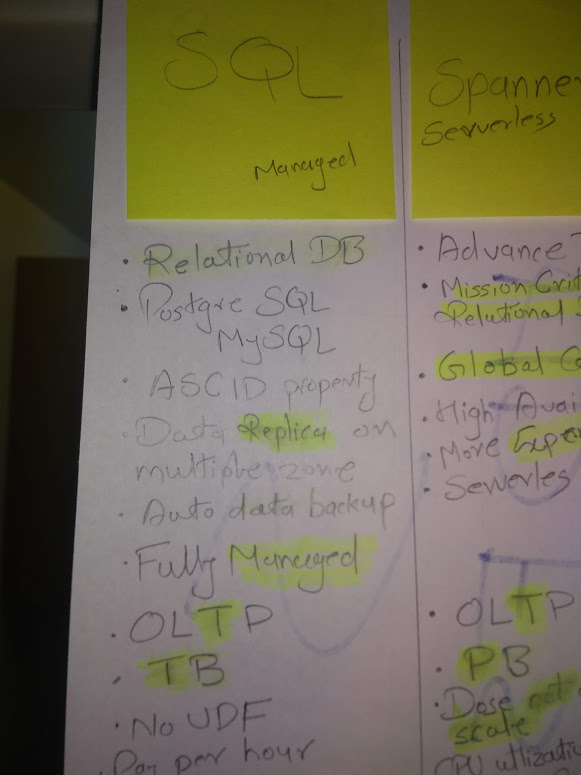 SQL
Managed
• Relational DB
• Postgre SQL
MySQL
• ASCID property
• Data Replica on
multiple zone
• Auto data backup
• Fully Managed
• OLTP
• TB
• No UDF
• Pay per hour
Spanne
Serverless
• Advance
• Mission Crit
Relational
• Global C
• High Avai
• More Expe
• Serverles
• OLTP
• PB
• Dose not
scale
CPU utlizati